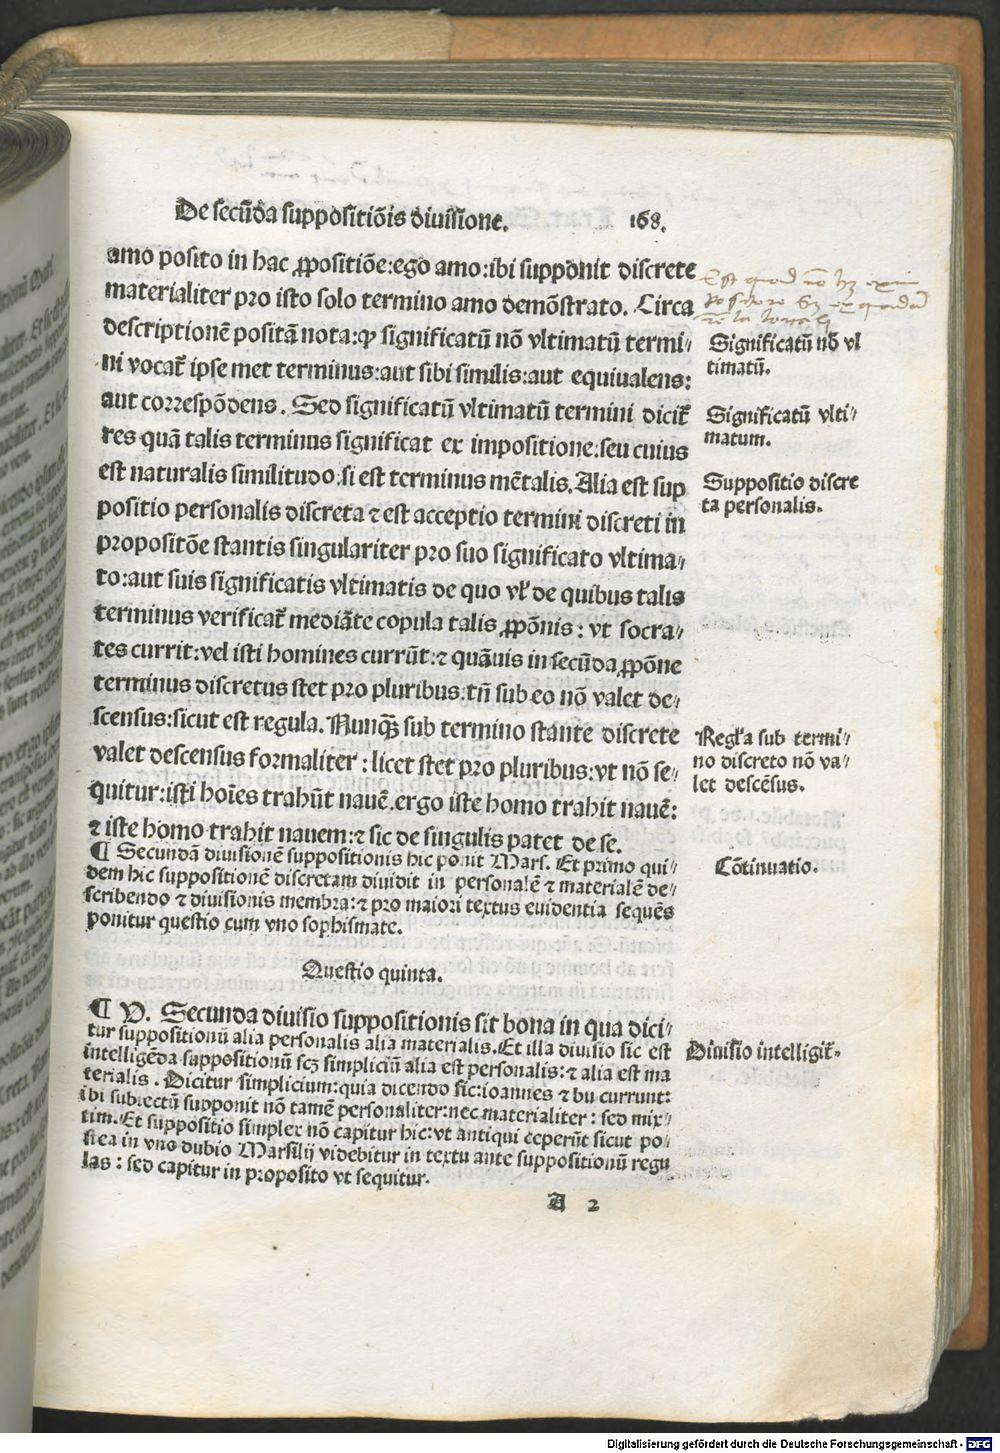 De secūda suppositiōis diuisione. 168.
amo posito in hac ꝓpositiōe:ego amo:ibi supponit discrete
materialiter pro isto solo termino amo demōstrato. Circa
descriptionē positā nota:ꝙ significatū nō vltimatū termi⸗
ni vocat̄ ipse met terminus:aut sibi similis:aut equiualens:
aut correspōdens. Sed significatū vltimatū termini dicit̄
res quā talis terminus significat ex impositione:seu cuius
est naturalis similitudo:si est terminus mētalis. Alia est sup
positio personalis discreta ⁊ est acceptio termini discreti in
propositōe stantis singulariter pro suo significato vltima⸗
to:aut suis significatis vltimatis de quo vl̓ de quibus talis
terminus verificat̄ mediāte copula talis ꝓpōnis: vt socra⸗
tes currit:vel isti homines currūt:⁊ quāuis in secūda ꝓpōne
terminus discretus stet pro pluribus:tn̄ sub eo nō valet de⸗
scensus:sicut est regula. Nunqꝫ sub termino stante discrete
valet descensus formaliter: licet stet pro pluribus:vt nō se⸗
quitur:isti hoīes trahūt nauē.ergo iste homo trahit nauē:
⁊ iste homo trahit nauem:⁊ sic de singulis patet de se.
¶ Secundā diuisionē suppositionis hic ponit Mars. Et primo qui⸗
dem hic suppositionē discretam diuidit in personalē ⁊ materialē de⸗
scribendo ⁊ diuisionis membra:⁊ pro maiori textus euidentia sequēs
ponitur questio cum vno sophismate.
Questio quinta.
¶ V. Secunda diuisio suppositionis sit bona in qua dici⸗
tur suppositionū alia personalis alia materialis. Et illa diuisio sic est
intelligēda suppositionū scꝫ simpliciū alia est personalis:⁊ alia est ma
terialis. Dicitur simplicium:quia dicendo sic:ioannes ⁊ bu currunt:
ibi subiectū supponit nō tamē personaliter:nec materialiter: sed mix⸗
tim. Et suppositio simplex nō capitur hic:vt antiqui ceperūt sicut po⸗
stea in vno dubio Marsilij videbitur in textu ante suppositionū regu
las: sed capitur in proposito vt sequitur.
A 2
Significatū nō vl
timatū.
Significatū vlti⸗
matum.
Suppositio discre
ta personalis.
Regl̓a sub termi⸗
no discreto nō va⸗
let descēsus.
Cōtinuatio.
Diuisio intelligit̄.
Digitalisierung gefördert durch die Deutsche Forschungsgemeinschaft - DFG